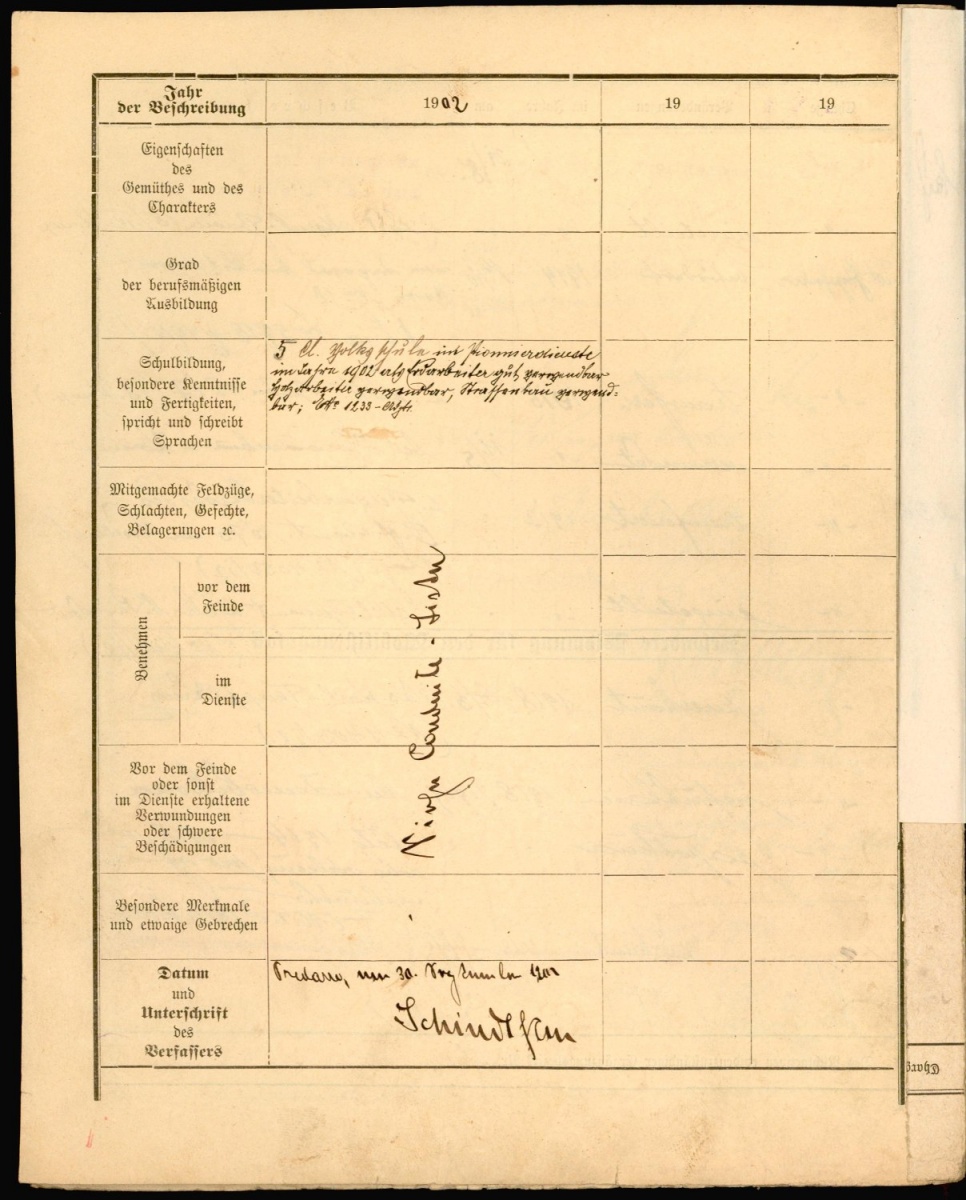 Jahr
der Beschreibung
1902
19
19
Eigenschaften
des
Gemüthes und des
Charakters
Grad
der berufsmäßigen
Ausbildung
Schulbildung,
besondere Kenntnisse
und Fertigkeiten,
spricht und schreibt
Sprachen
5 Cl. Volksschule im Pionnierdienste
im Jahre 1902 als Erdarbeiter gut verwendbar
Holzarbeiter verwendbar, Strassenbau verwend=
bar; 1233
Mitgemachte Feldzüge,
Schlachten, Gefechte,
Belagerungen ꝛc.
Benehmen
vor dem
Feinde
im
Dienste
Siehe Conduite-Liste
Vor dem Feinde
oder sonst
im Dienste erhaltene
Verwundungen
oder schwere
Beschädigungen
Besondere Merkmale
und etwaige Gebrechen
Datum
und
Unterschrift
des
Verfassers
Predazzo, am 30. September
Charg